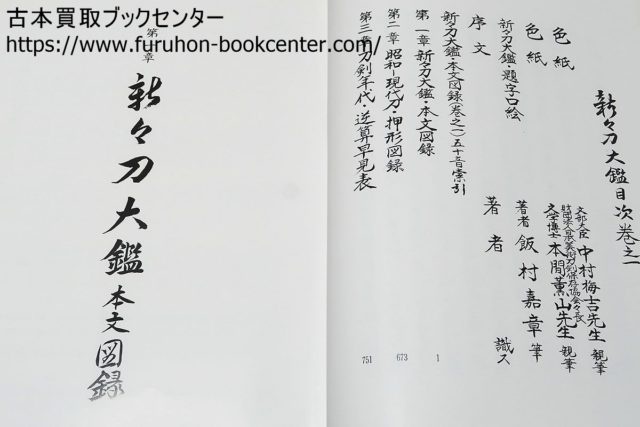 古本買取ブックセンター
https://www.furuhon-bookcenter.com/
新々刀大鑑目次巻之一
色紙
文部大臣 中村梅吉先生 親筆
色紙
財団法人日本美術刀剣保存協会々長
文学博士 本間薫山先生 親筆
新々刀大鑑・題字口絵
著者 飯村嘉章 筆
序文
著者 識ス
新々刀大鑑・本文図録(巻之一)五十音索引
第一章 新々刀大鑑・本文図録 1
第二章 昭和-現代刀・押形図録 673
第三章 刀剣年代・逆算早見表 751
第 章
新々刀大鑑本文図録